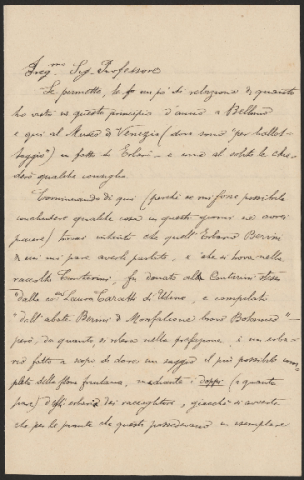 Preg.mo Sig. Professore
Se permette, le fo un po' di relazione di quanto
ho visto in questo principio d'anno a Belluno
e qui al Museo di Venezia (dove sono "per
) in fatto di Erbari - e come al solito le
qualche consiglio.
Cominciando di qui (perchè se mi fosse possibile
concludere qualche cosa in questi giorni ne avrei
piacere) trovai intanto che quell'Erbario
di cui mi pare averle parlato, e che si trova nella
raccolta Contarini, fu donato alla Contarini stesso
"dalla Laura Caratti di Udine, e compilato
"dell'abate Berini di Monfalcone bravo Botanico" -
però, da quanto si rileva nella prefazione, è un erba-
rio fatto a scopo di dare un saggio il più possibile com-
pleto della flora friulana, mediante i doppi (a quanto
pare) degli erbari dei raccoglitori, giacchè si avverte
che per le piante che questi possedevano in esemplare